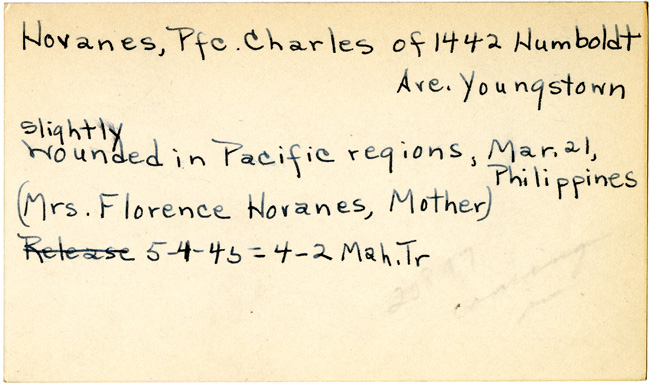 Hovanes, Pfc. Charles of 1442 Humboldt
Ave. Youngstown
slightly
Wounded in Pacific regions, Mar. 21,
Philippines
(Mrs. Florence Hovanes, Mother)
Release 5-4-45=4-2 Mah. Tr